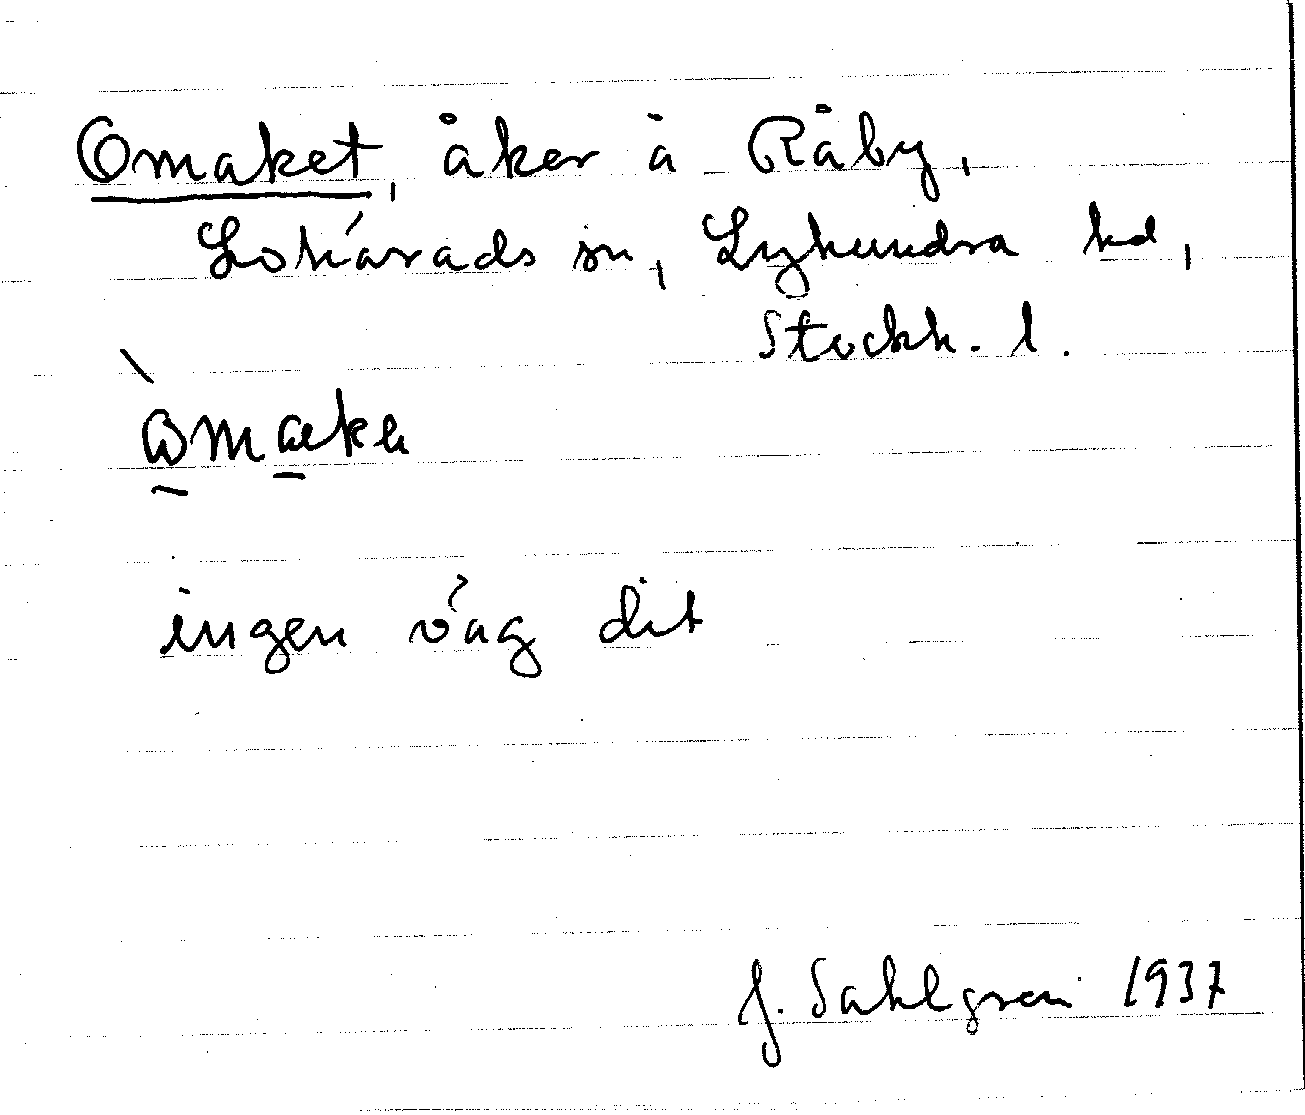 Omaket, åker å Råby,
Lohärads sn, Lyhundra hd,
Stockh. l.
ingen väg dit
J. Sahlgren 1937